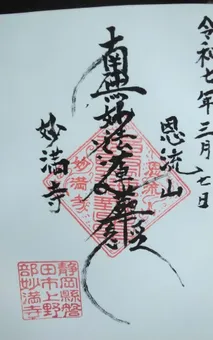 令和七年三月七日
恩流山
南無妙法蓮華経
妙満寺
静岡縣磐
田市上野
部妙満寺